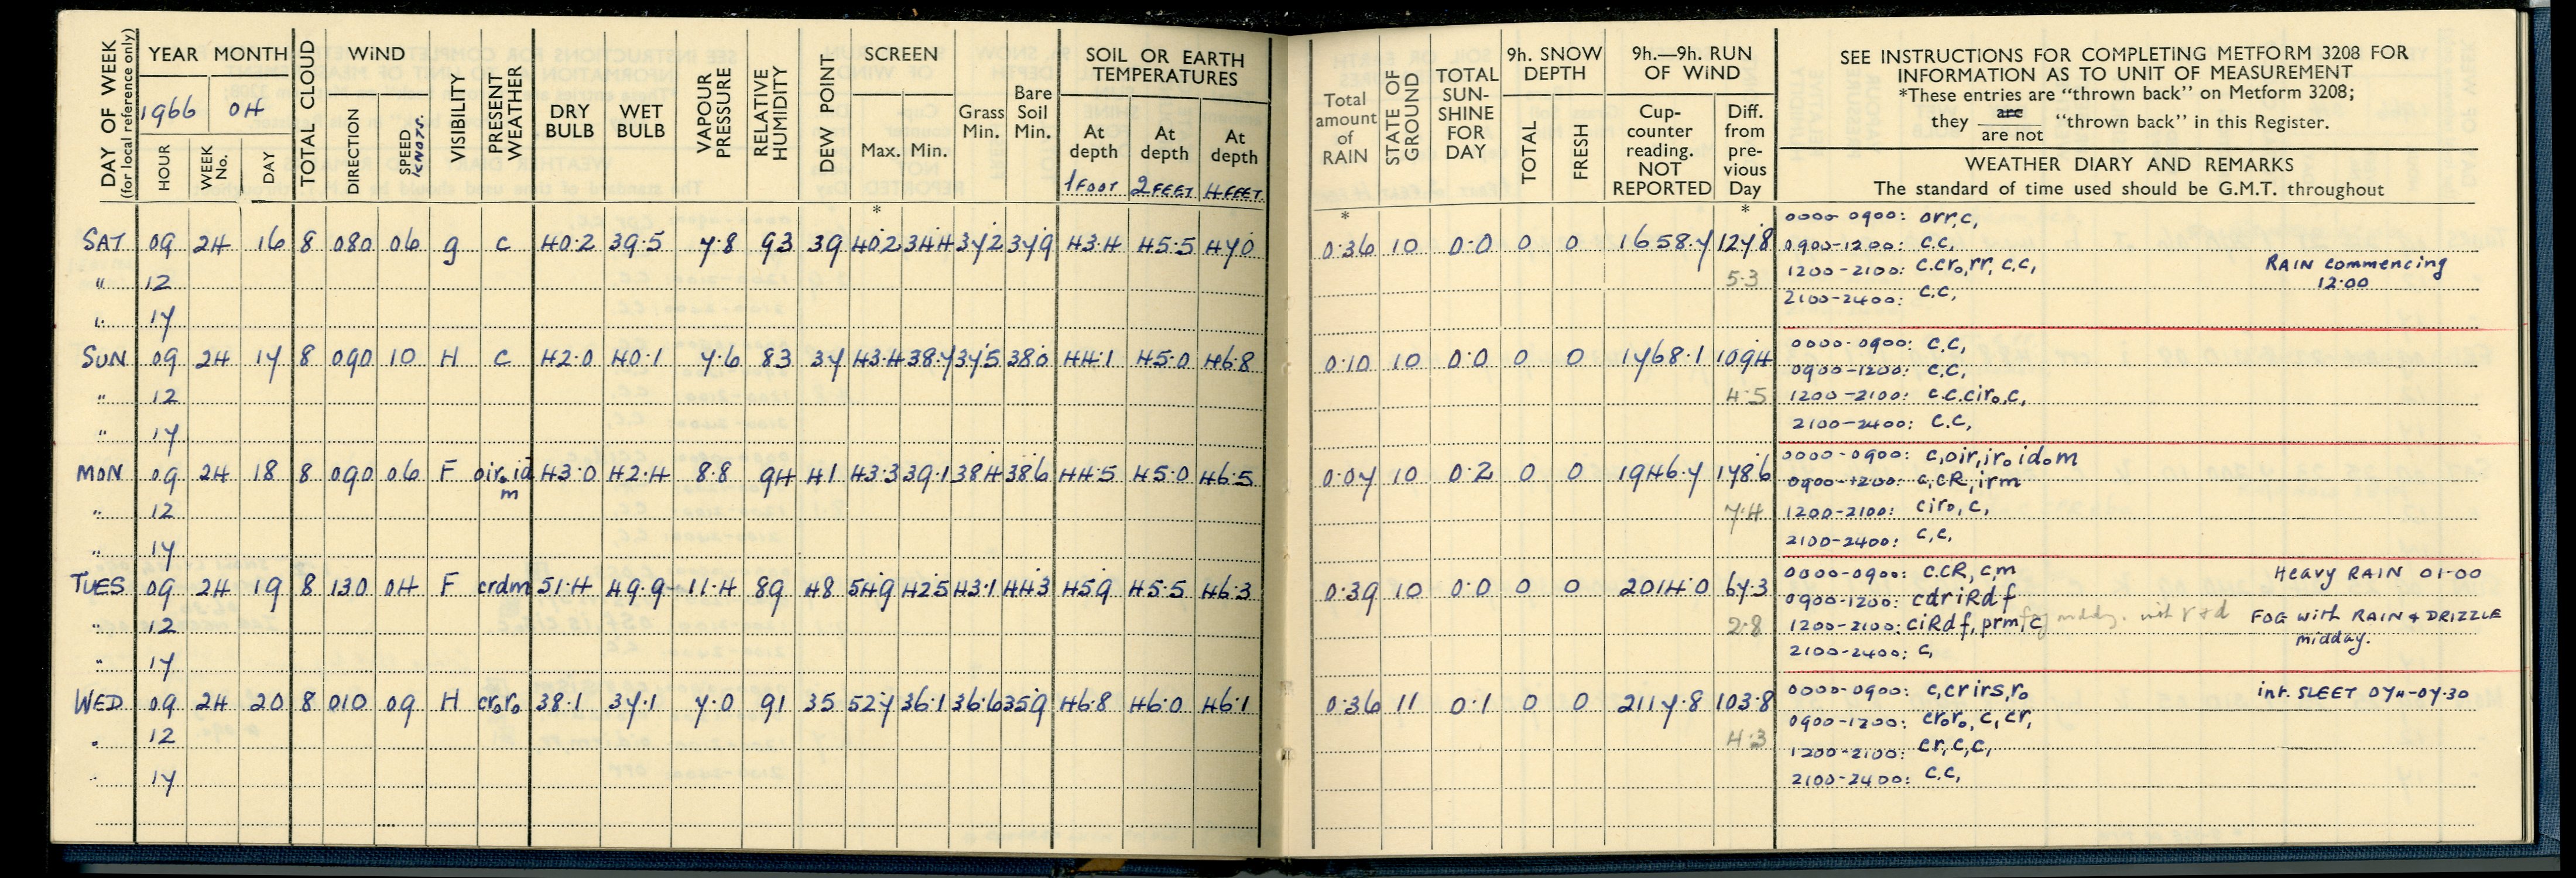 DAY OF WEEK (for local reference only) YEAR MONTH TOTAL CLOUD WIND VISIBILITY PRESENT WEATHER DRY BULB WET BULB VAPOUR PRESSURE RELATIVE HUMIDITY DEW POINT SCREEN Grass Min. Bare Soil Min. SOIL OR EARTH TEMPERATURES
1966 04
HOUR WEEK No. DAY DIRECTION SPEED KNOTS. Max. Min. At depth At depth At depth
1 FOOT 2 FEET 4 FEET
*
SAT 09 24 16 8 080 06 g c 40.2 39.5 7.8 93 39 40.2 34.4 37.2 37.9 43.4 45.5 47.0
" 12
" 17
SUN 09 24 17 8 090 10 H c 42.0 40.1 7.6 83 37 43.4 38.7 37.5 38.0 44.1 45.0 46.8
" 12
" 17
MON 09 24 18 8 090 06 F oir₀id m 43.0 42.4 8.8 94 41 43.3 39.1 38.4 38.6 44.5 45.0 46.5
" 12
" 17
TUES 09 24 19 8 130 04 F crdm 51.4 49.9 11.4 89 48 54.9 42.5 43.1 44.3 45.9 45.5 46.3
" 12
" 17
WED 09 24 20 8 010 09 H cr₀r₀ 38.1 37.1 7.0 91 35 52.7 36.1 36.6 35.9 46.8 46.0 46.1
" 12
" 17
Total amount of RAIN STATE OF GROUND TOTAL SUN-SHINE FOR DAY 9h. SNOW DEPTH 9h.—9h. RUN OF WIND
TOTAL FRESH Cup-counter reading. NOT REPORTED Diff. from pre-vious Day
SEE INSTRUCTIONS FOR COMPLETING METFORM 3208 FOR
INFORMATION AS TO UNIT OF MEASUREMENT
*These entries are "thrown back" on Metform 3208;
they are
are not "thrown back" in this Register.
WEATHER DIARY AND REMARKS
The standard of time used should be G.M.T. throughout
* *
0.36 10 0.0 0 0 1658.7 127.8
5.3
0000-0900: orr,c,
0900-1200: c.c,
1200-2100: c.cr₀,rr, c.c, RAIN commencing
12.00
2100-2400: c.c,
0.10 10 0.0 0 0 1768.1 109.4
4.5
0000-0900: c.c,
0900-1200: c.c,
1200-2100: c.c.cir₀,c,
2100-2400: c.c,
0.07 10 0.2 0 0 1946.7 178.6
7.4
0000-0900: c,oir,ir₀id₀m
0900-1200: c,cR,irm
1200-2100: cir₀,c,
2100-2400: c,c,
0.39 10 0.0 0 0 2014.0 67.3
2.8
0000-0900: c.cR, c,m Heavy RAIN 01.00
0900-1200: cdriRdf
1200-2100: ciRdf, prm,c fog midday. with r+d FOG with RAIN & DRIZZLE
midday.
2100-2400: c,
0.36 11 0.1 0 0 2117.8 103.8
4.3
0000-0900: c,crirs,r₀ int. SLEET 074-07.30
0900-1200: cr₀r₀, c,cr,
1200-2100: cr,c,c,
2100-2400: c.c,